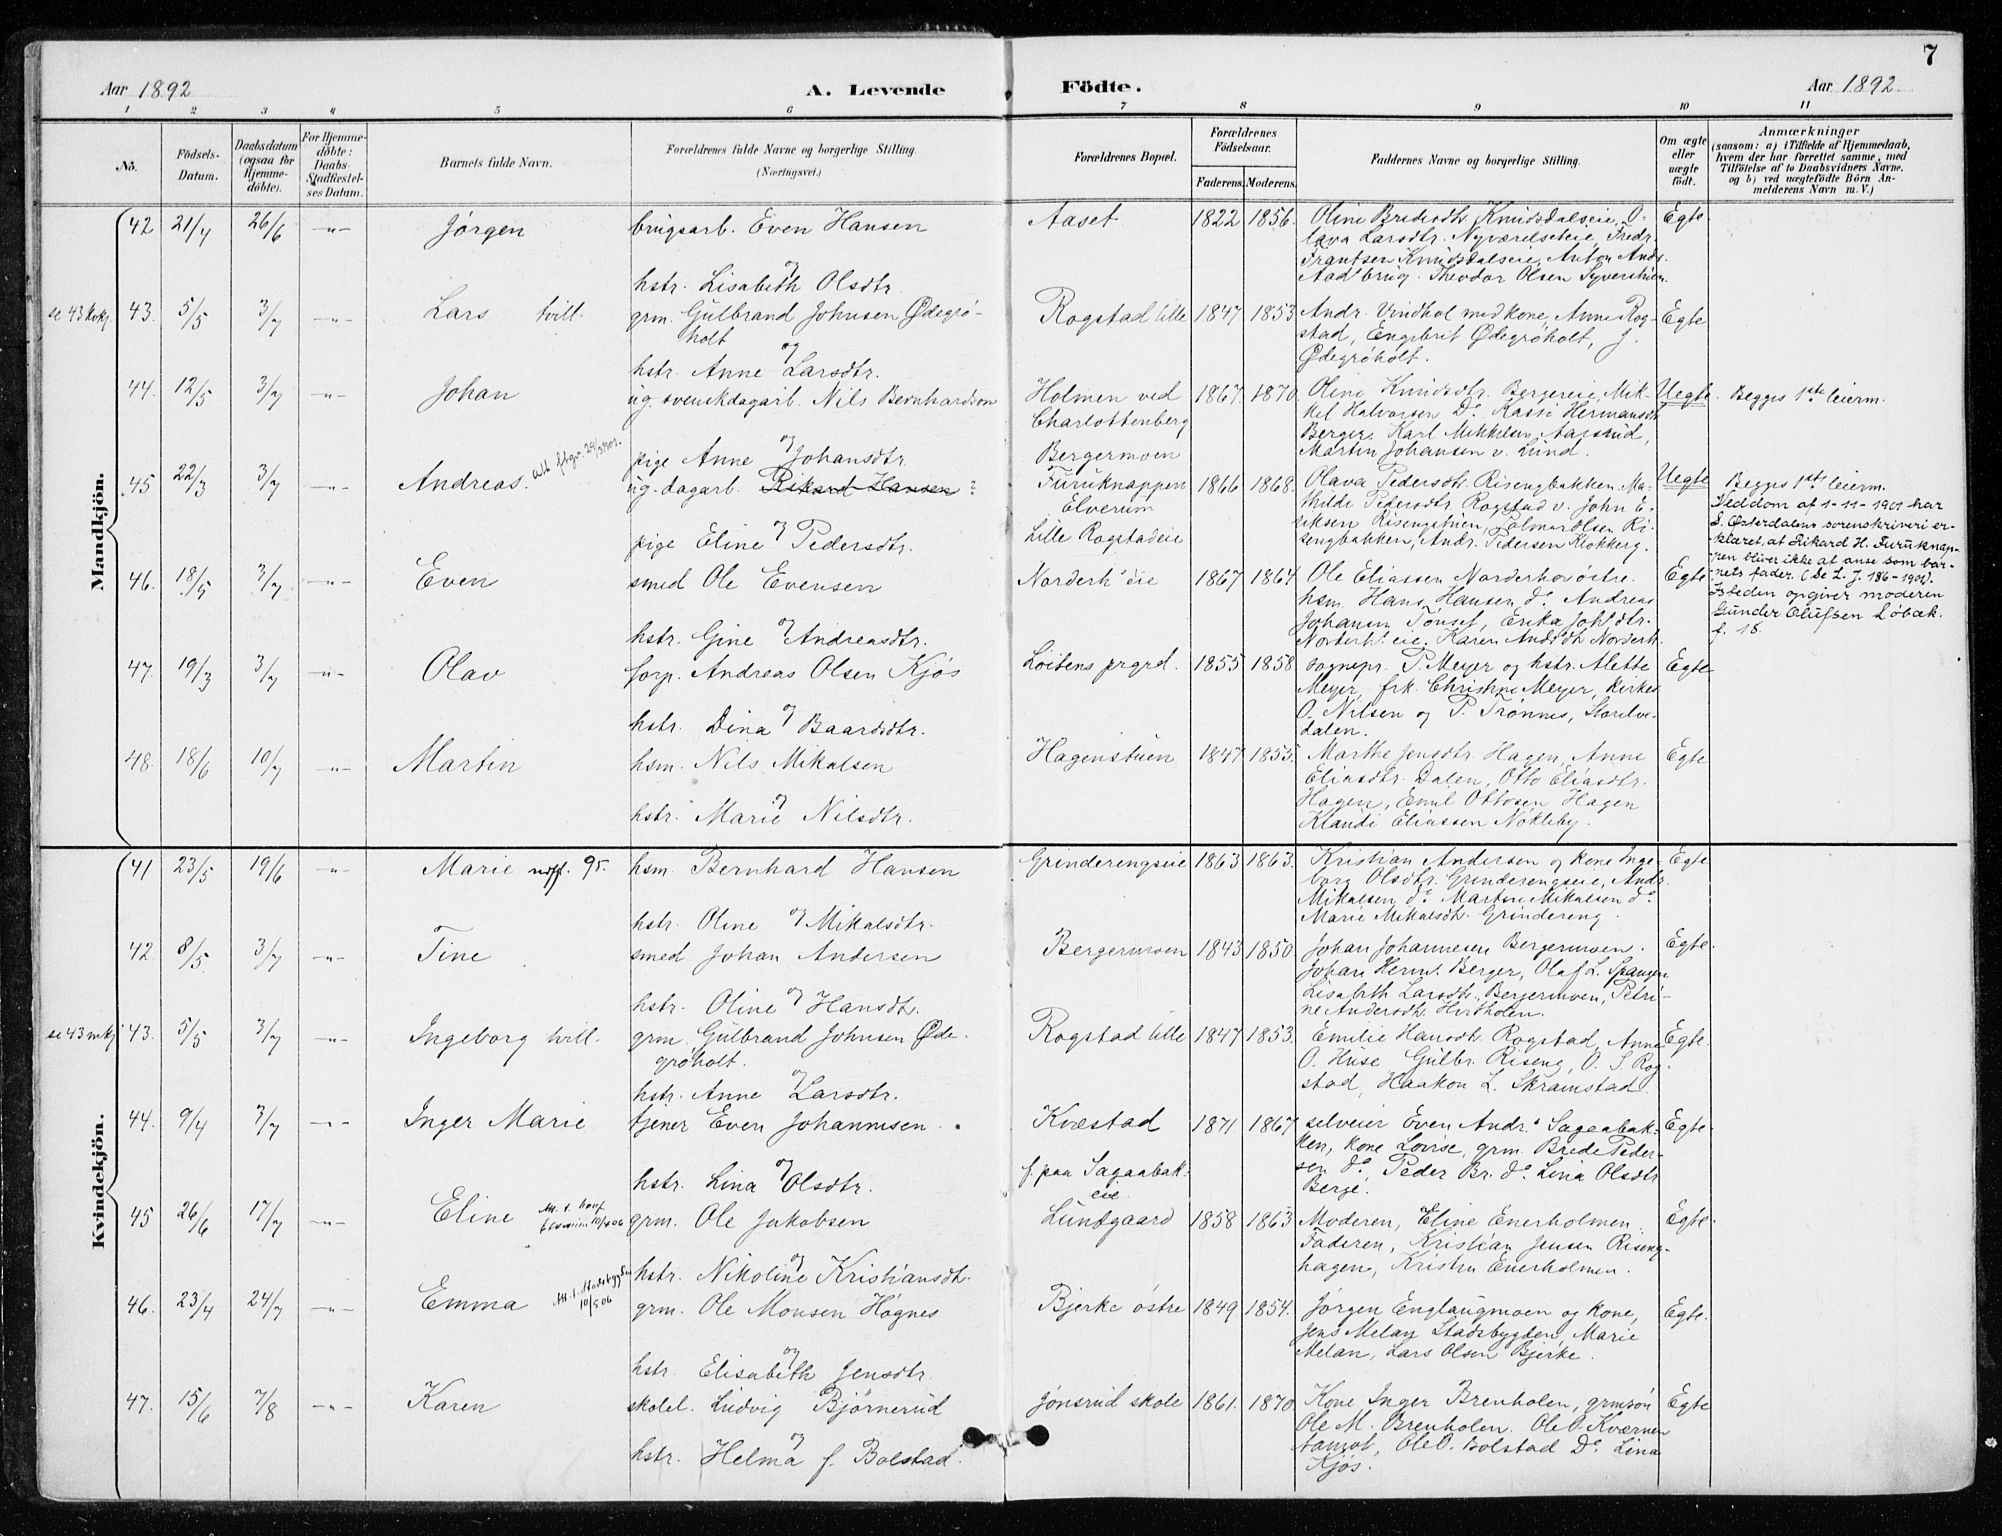 7
Aar 1892 A. Levende Födte. Aar 1892
1 2 3 4 5 6 7 8 9 10 11
No.
Födsels-Datum.
Daabsdatum (ogsaa for Hjemmedöbte).
For Hjemmedöbte: Daabs Stadfæstelses Datum.
Barnets fulde Navn.
Forældrenes fulde Navne og borgerlige Stilling. (Næringsvei.)
Forældrenes Bopæl.
Forældrenes Födselsaar. Faderens. Moderens.
Faddernes Navne og borgerlige Stilling.
Om ægte eller uægte födt.
Anmærkninger
(saasom: a) i Tilfælde af Hjemmedaab, hvem der har forrettet samme, med Tilföielse af to Daabsvidners Navne, og b) ved uægtefödte Börn Anmelderens Navn m. V.)
Mandkjön.
42 21/4 26/6 -"- Jørgen brugsarb. Even Hansen Aaset 1822 1856. Oline Bredesdtr. Knudsdalseie, O- Egte
lava Larsdtr. Nyværelseteie, Fredr.
Frantsen Knudsdalseie, Anton Andr.
og
hstr. Lisabeth Olsdtr. Aadlbrug. Theodor Olsen
se 43 kvkj 43. 5/5 3/7 -"- Lars tvill. grm. Gulbrand Johnsen Ødegrö- Rogstad lille 1847 1853 Andr. Vindhol med kone, Anne Rog- Egte
holt stad, Engebrit Ødegröholt, J.
og Ødegröholt.
hstr. Anne Larsdtr.
44. 12/5 3/7 -"- Johan ug. svenskdagarb. Nils Bernhardson Holmen ved 1867. 1870. Oline Knudsdtr. Bergereie, Mik- Uegte. Begges 1ste leierm.
Charlottenberg kel Halvorsen Do. Kasti Hermansdtr
Berger, Karl Mikkelsen
og
pige Anne Johansdtr. Bergermoen Martin Johansen v. Lund.
45 22/3 3/7 -"- Andreas. ug. dagarb. Rikard Hansen? Furuknappen 1866 1868. Olava Pedersdtr. Risengbakken. Ma- Uegte Begges 1ste leierm.
Elverum thilde Pedersdtr Rogstad v. John E- Ved dom af 1-11-1901 har
riksen Risengstuen, Palmar Olsen Ri- S. Østerdalens sorenskriveri er-
og
pige Eline Pedersdtr. Lille Rogstadeie sengbakken, Andr. Pedersen Klokkerg. klæret, at Rikard H. Furuknap-
pen bliver ikke at anse som bar-
46. 18/5 3/7 -"- Even smed Ole Evensen Norderh.eie 1867 1864. Ole Eliassen Norderhov østre. Egte nets fader. (De L. J. 186-1901).
hsm. Hans Hansen Do. Andreas Isteden opgiver moderen
Johansen Tönset, Erika Johsdtr. Gunder Olufsen Löbæk.
og
hstr. Gine Andreasdtr. Norderh.eie, Karen Andrsdtr. Norderh. f. 18.
47. 19/3 3/7 -"- Olav forp. Andreas Olsen Kjös Löitens prgrd. 1855 1858 sognepr. P. Meyer og hstr. Alette Egte
Meyer, frk. Christine Meyer, kirkes.
O. Nilsen og P. Trönnes, Storelve-
og
hstr. Dina Baardsdtr. dalen.
48. 18/6 10/7 -"- Martin hsm. Nils Mikalsen Hagenstuen 1847 1855. Marthe Jensdtr. Hagen, Anne Egte
Eliasdtr. Dalen, Otto Eliasdtr.
Hagen, Emil Ottosen Hagen
og
hstr. Marie Nilsdtr. Klaudi Eliassen Nökleby.
Kvindekjön.
41 23/5 19/6 -"- Marie 95. hsm. Bernhard Hansen Grinderengseie 1863 1863. Kristian Andersen og kone Inge- Egte
borg Olsdtr. Grinderengseie, Andr.
Mikalsen do. Martin Mikalsen do.
og
hstr. Oline Mikalsdtr. Marie Mikalsdtr. Grindereng.
42 8/5 3/7 -"- Tine smed Johan Andersen Bergermoen 1843 1850. Johan Johannesen Bergermoen. Egte.
Johan Herm. Berger, Olaf L. Spangen
og
hstr. Oline Hansdtr. Lisabeth Larsdtr. Bergermoen, Petri-
ne Andersdtr.
se 43 mkj 43. 5/5 3/7 -"- Ingeborg tvill. grm. Gulbrand Johnsen Øde- Rogstad lille 1847 1853. Emilie Hansdtr. Rogstad, Anne Egte.
gröholt. O. Huse, Gulbr. Riseng, O. S. Rog-
og stad, Haakon L. Skramstad.
hstr. Anne Larsdtr.
44. 9/4 3/7 -"- Inger Marie tjener Even Johannesen Kvæstad 1871 1867 selveier Even Andr. Sagaabak- Egte.
ken, kone Lovise, grm. Brede Peder-
og f. paa Sagaabak- sen do. Peder Br. do. Lina Olsdtr
hstr. Lina Olsdtr. eie. Berge.
45 26/6 17/7 -"- Eline 10/5 06 grm. Ole Jakobsen Lundgaard 1858 1863 Moderen, Eline Enerholmen. Egte.
Faderen, Kristian Jensen Riseng-
og
hstr. Nikoline Kristiansdtr. hagen, Kristen Enerholmen.
46. 23/4 24/7 -"- Emma Att. t. Stadsbygden 10/5 06 grm. Ole Monsen Högnes Bjerke östre 1849 1854. Jørgen Englaugmoen og kone, Egte.
Jens Melan Stadsbygden, Marie
og Melan, Lars Olsen Bjerke.
hstr. Elisabeth Jensdtr.
47. 15/6 7/8 -"- Karen skolel. Ludvig Björnerud Jönsrud skole 1861. 1870. Kone Inger Brenholen, grmsön Egte
Ole M. Brenholen. Ole O. Kværnen
og Ole O. Bolstad Do. Lina
hstr. Helma f. Bolstad. Kjös.